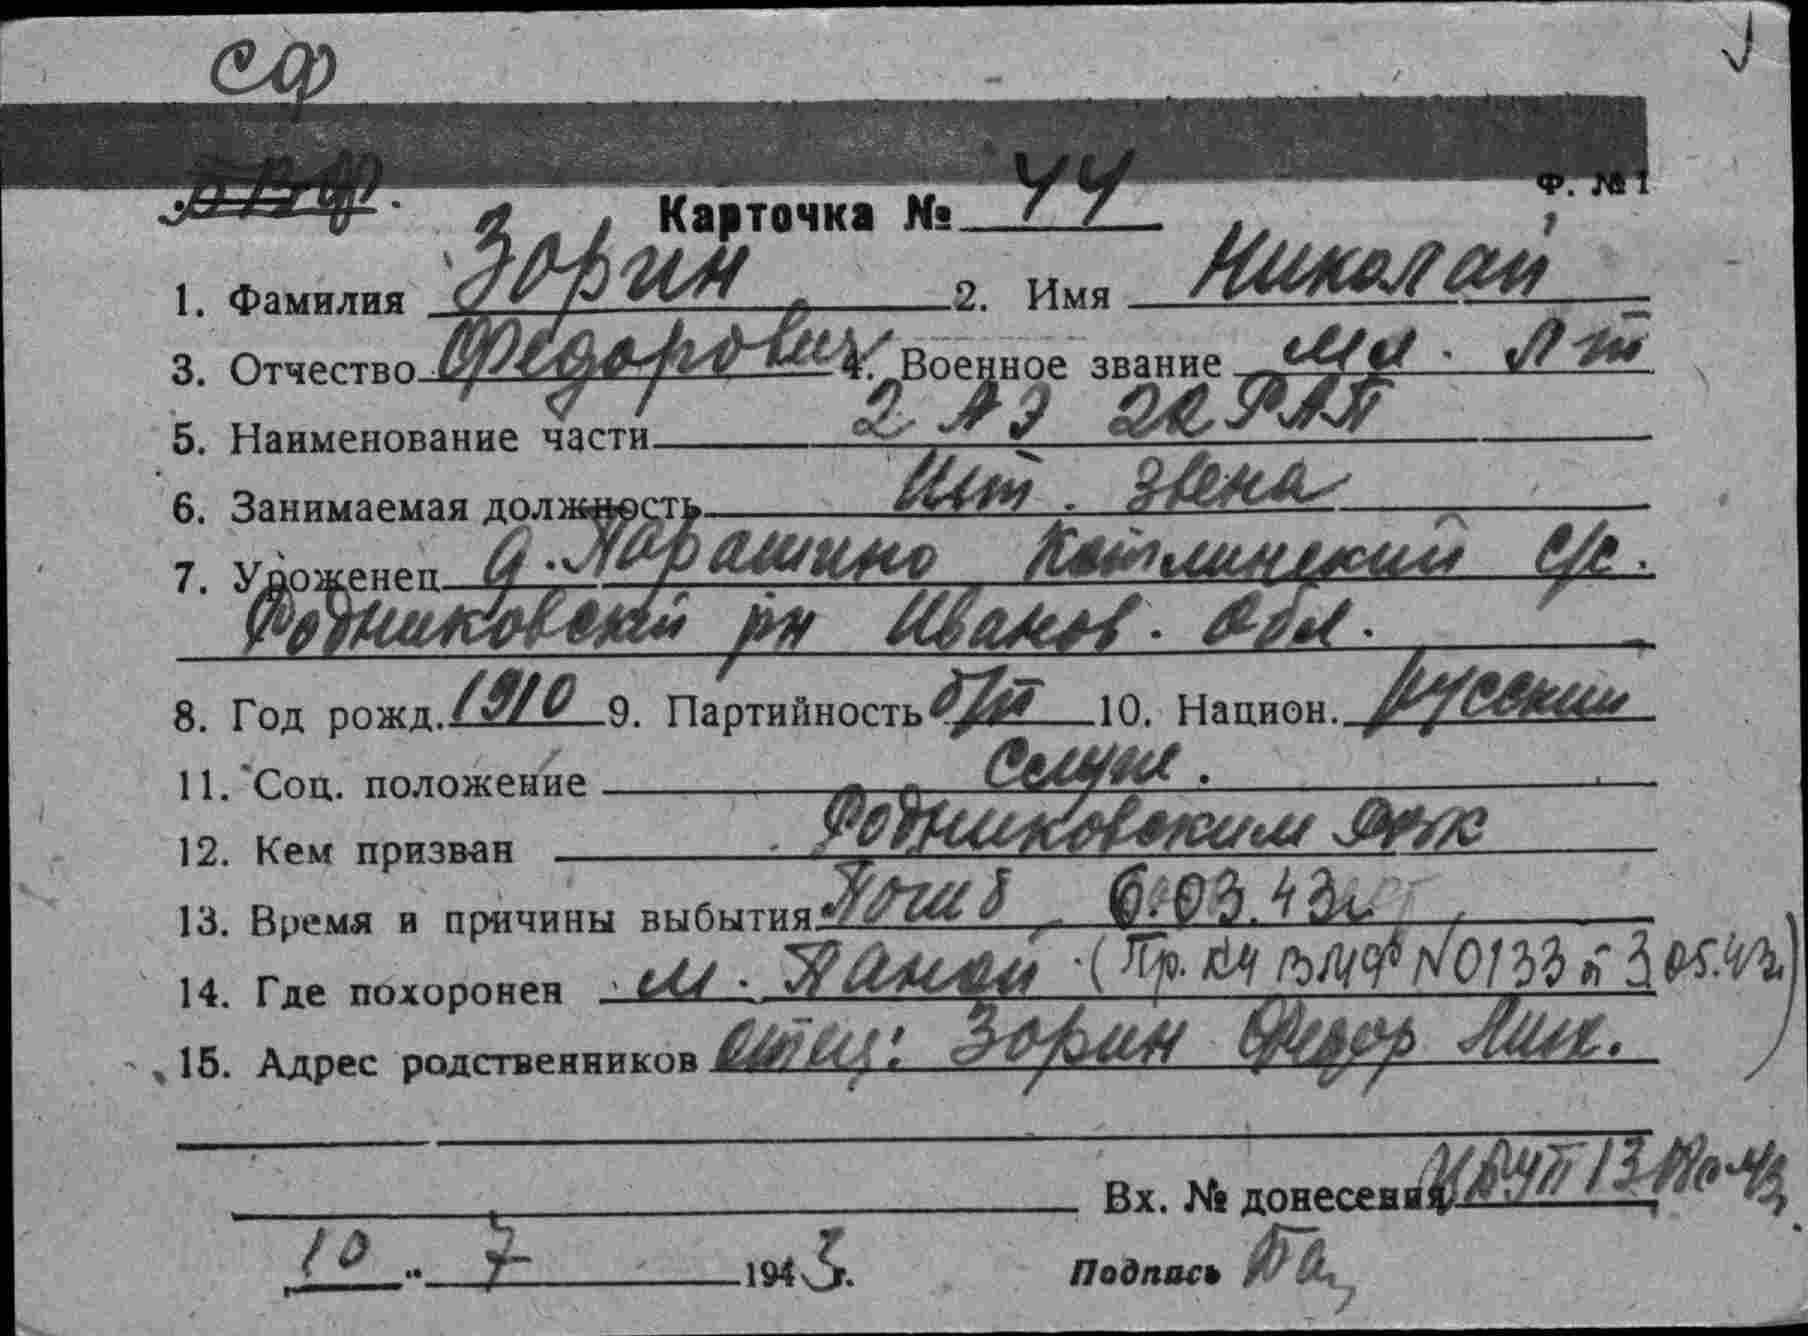 СФ
БВФ.
Ф. № 1
Карточка № 44
1. Фамилия Зорин 2. Имя Николай
3. Отчество Федорович 4. Военное звание мл. л-т
5. Наименование части 2 АЭ 22 РАП
6. Занимаемая должность шт. звена
7. Уроженец д. Парашино Котлинский с/с.
Родниковский рн Иванов. обл.
8. Год рожд. 1910 9. Партийность б/п 10. Национ. русский
11. Соц. положение служ.
12. Кем призван Родниковским РВК
13. Время и причины выбытия Погиб 6.03.43г.
14. Где похоронен м. Паной (Пр. КЧ ВМФ №0133 п 3 05.43г.)
15. Адрес родственников отец: Зорин Федор Мих.
Вх. № донесения
10 " 7 1943 г. Подпись